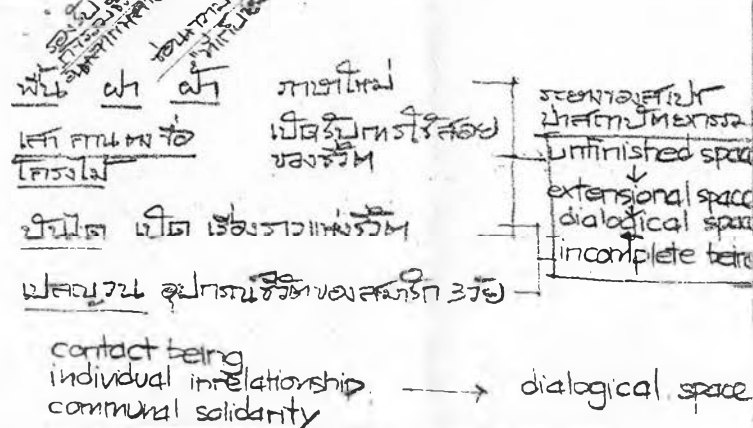 พื้น ฝา ฝ้า ภาษาใหม่
เสา คาน ตง ขื่อ เปิดรับการใช้สอย
โครงไม้ ของชีวิต
บันได เปิด เรื่องราวแห่งชีวิต
เปลญวน อุปกรณ์ชีวิตของสมาชิก 3 วัย
ระยะของสเปซ
unfinished spac
extensional spac
dialogical spac
incomplete bein
contact being
individual inrelationship → dialogical space
communal solidarity